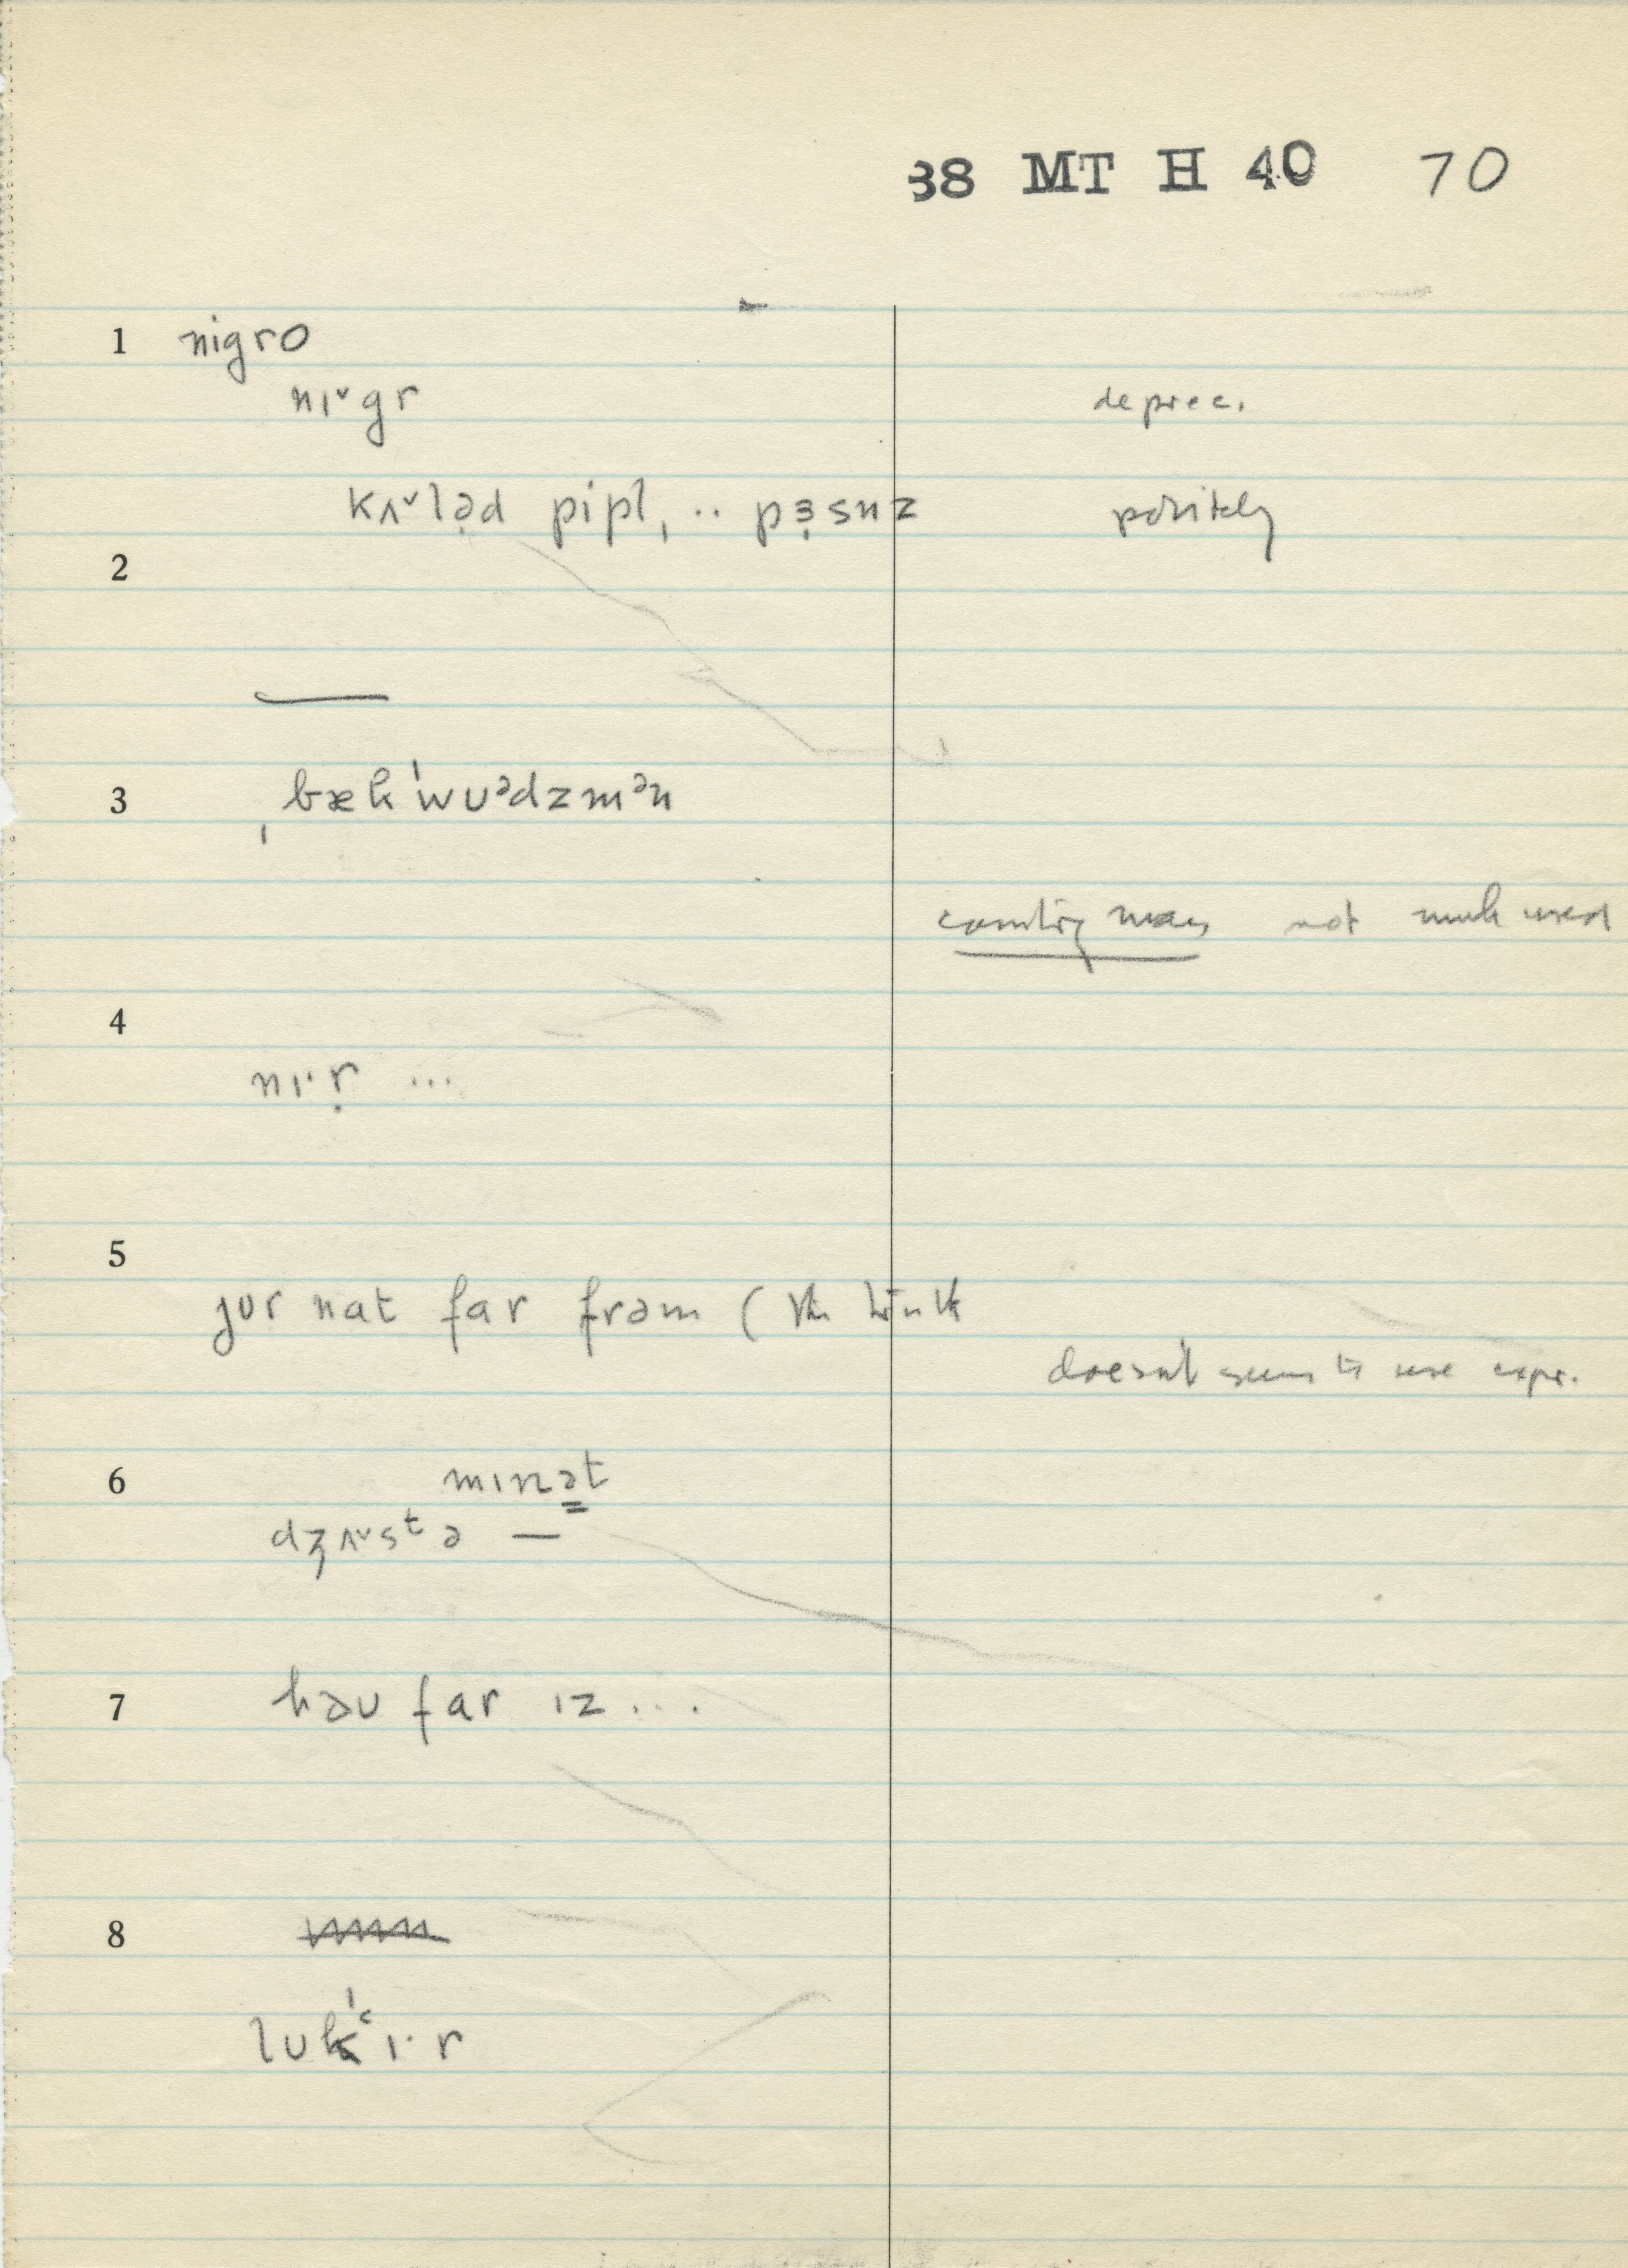 38 MT H 40 70
1 nigro
nɪ˅gr deprec.
kʌ˅lə̣d pipl̩, .. pɜ̣snz politely
2
—
3 ˌbæk'wʊᵊdzmᵊn
country man not much used
4
nɪ·ṛ ...
5
jʊr nat far frəm (
doesn't seem to use expr.
6 mɪnə̳t
dʒʌ˅sᵗ ə —
7 həʊ far ɪz ...
8
lʊk'ʿɪ·r